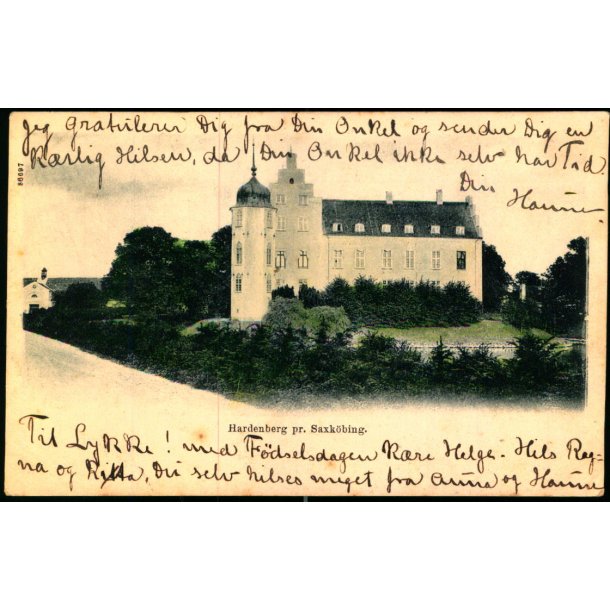 Jeg Gratulerer Dig fra Din Onkel og sender Dig en
Kærlig Hilsen, da Din Onkel ikke selv har Tid.
Din Hanne
86697
Hardenberg pr. Saxköbing.
Til Lykke! med Födselsdagen Kære Helge. Hils Rag-
na og Ritta, Du selv hilses meget fra Anna og Hanne